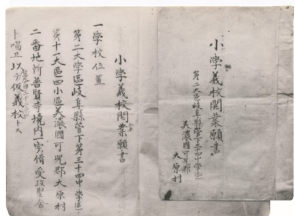 小學義校開業願書
第二大學區岐阜縣管下第三十四中學區
美濃國可児郡
太原村
小學義校開業願書
一學校位置
第二大學區岐阜縣管下第三十四中學區
第十一大區四小區美濃國可児郡太原村
二番地所普賢寺境内一宇借受設
以テ仮義校トス